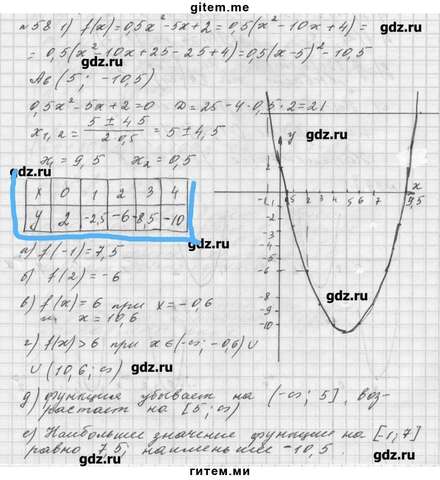 gitem.me
№58 1) f(x)=0,5x²-5x+2=0,5(x²-10x+4)=
=0,5(x²-10x+25-25+4)=0,5(x-5)²-10,5
gdz.ru
gdz.ru
Ав(5; -10,5)
0,5x²-5x+2=0 D=25-4·0,5·2=21
x1,2= 5±4,5 / 2·0,5 = 5±4,5
x1=9,5 x2=0,5
gdz.ru
x 0 1 2 3 4
y 2 -2,5 -6 -8,5 -10
gdz.ru
а) f(-1)=7,5
б) f(2)=-6
в) f(x)=6 при x=-0,6
и x=10,6
г) f(x)>6 при x∈(-∞; -0,6)∪
∪(10,6; ∞)
gdz.ru
gdz.ru
д) функция убывает на (-∞; 5], воз-
растает на [5; ∞)
gdz.ru
е) Наибольшее значение функции на [-1;7]
равно 7,5, наименьшее -10,5.
gdz.ru
gdz.ru
y
x
gdz.ru
2
-1
0,5
9,5
-2
-3
-4
-6
-9
-10
gdz.ru
гитем.ми